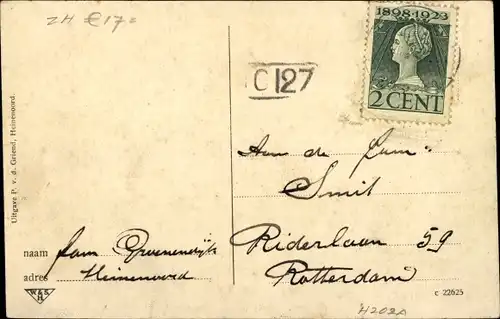 ZH €17=
1898-1923
2 CENT
C 127
Uitgave P. v. d. Griend, Heinenoord.
Aan de Fam.
Smit
Riderlaan 59
Rotterdam
naam Fam Groenendijk
adres Heinenoord
W & S
H
c 22625
H202A